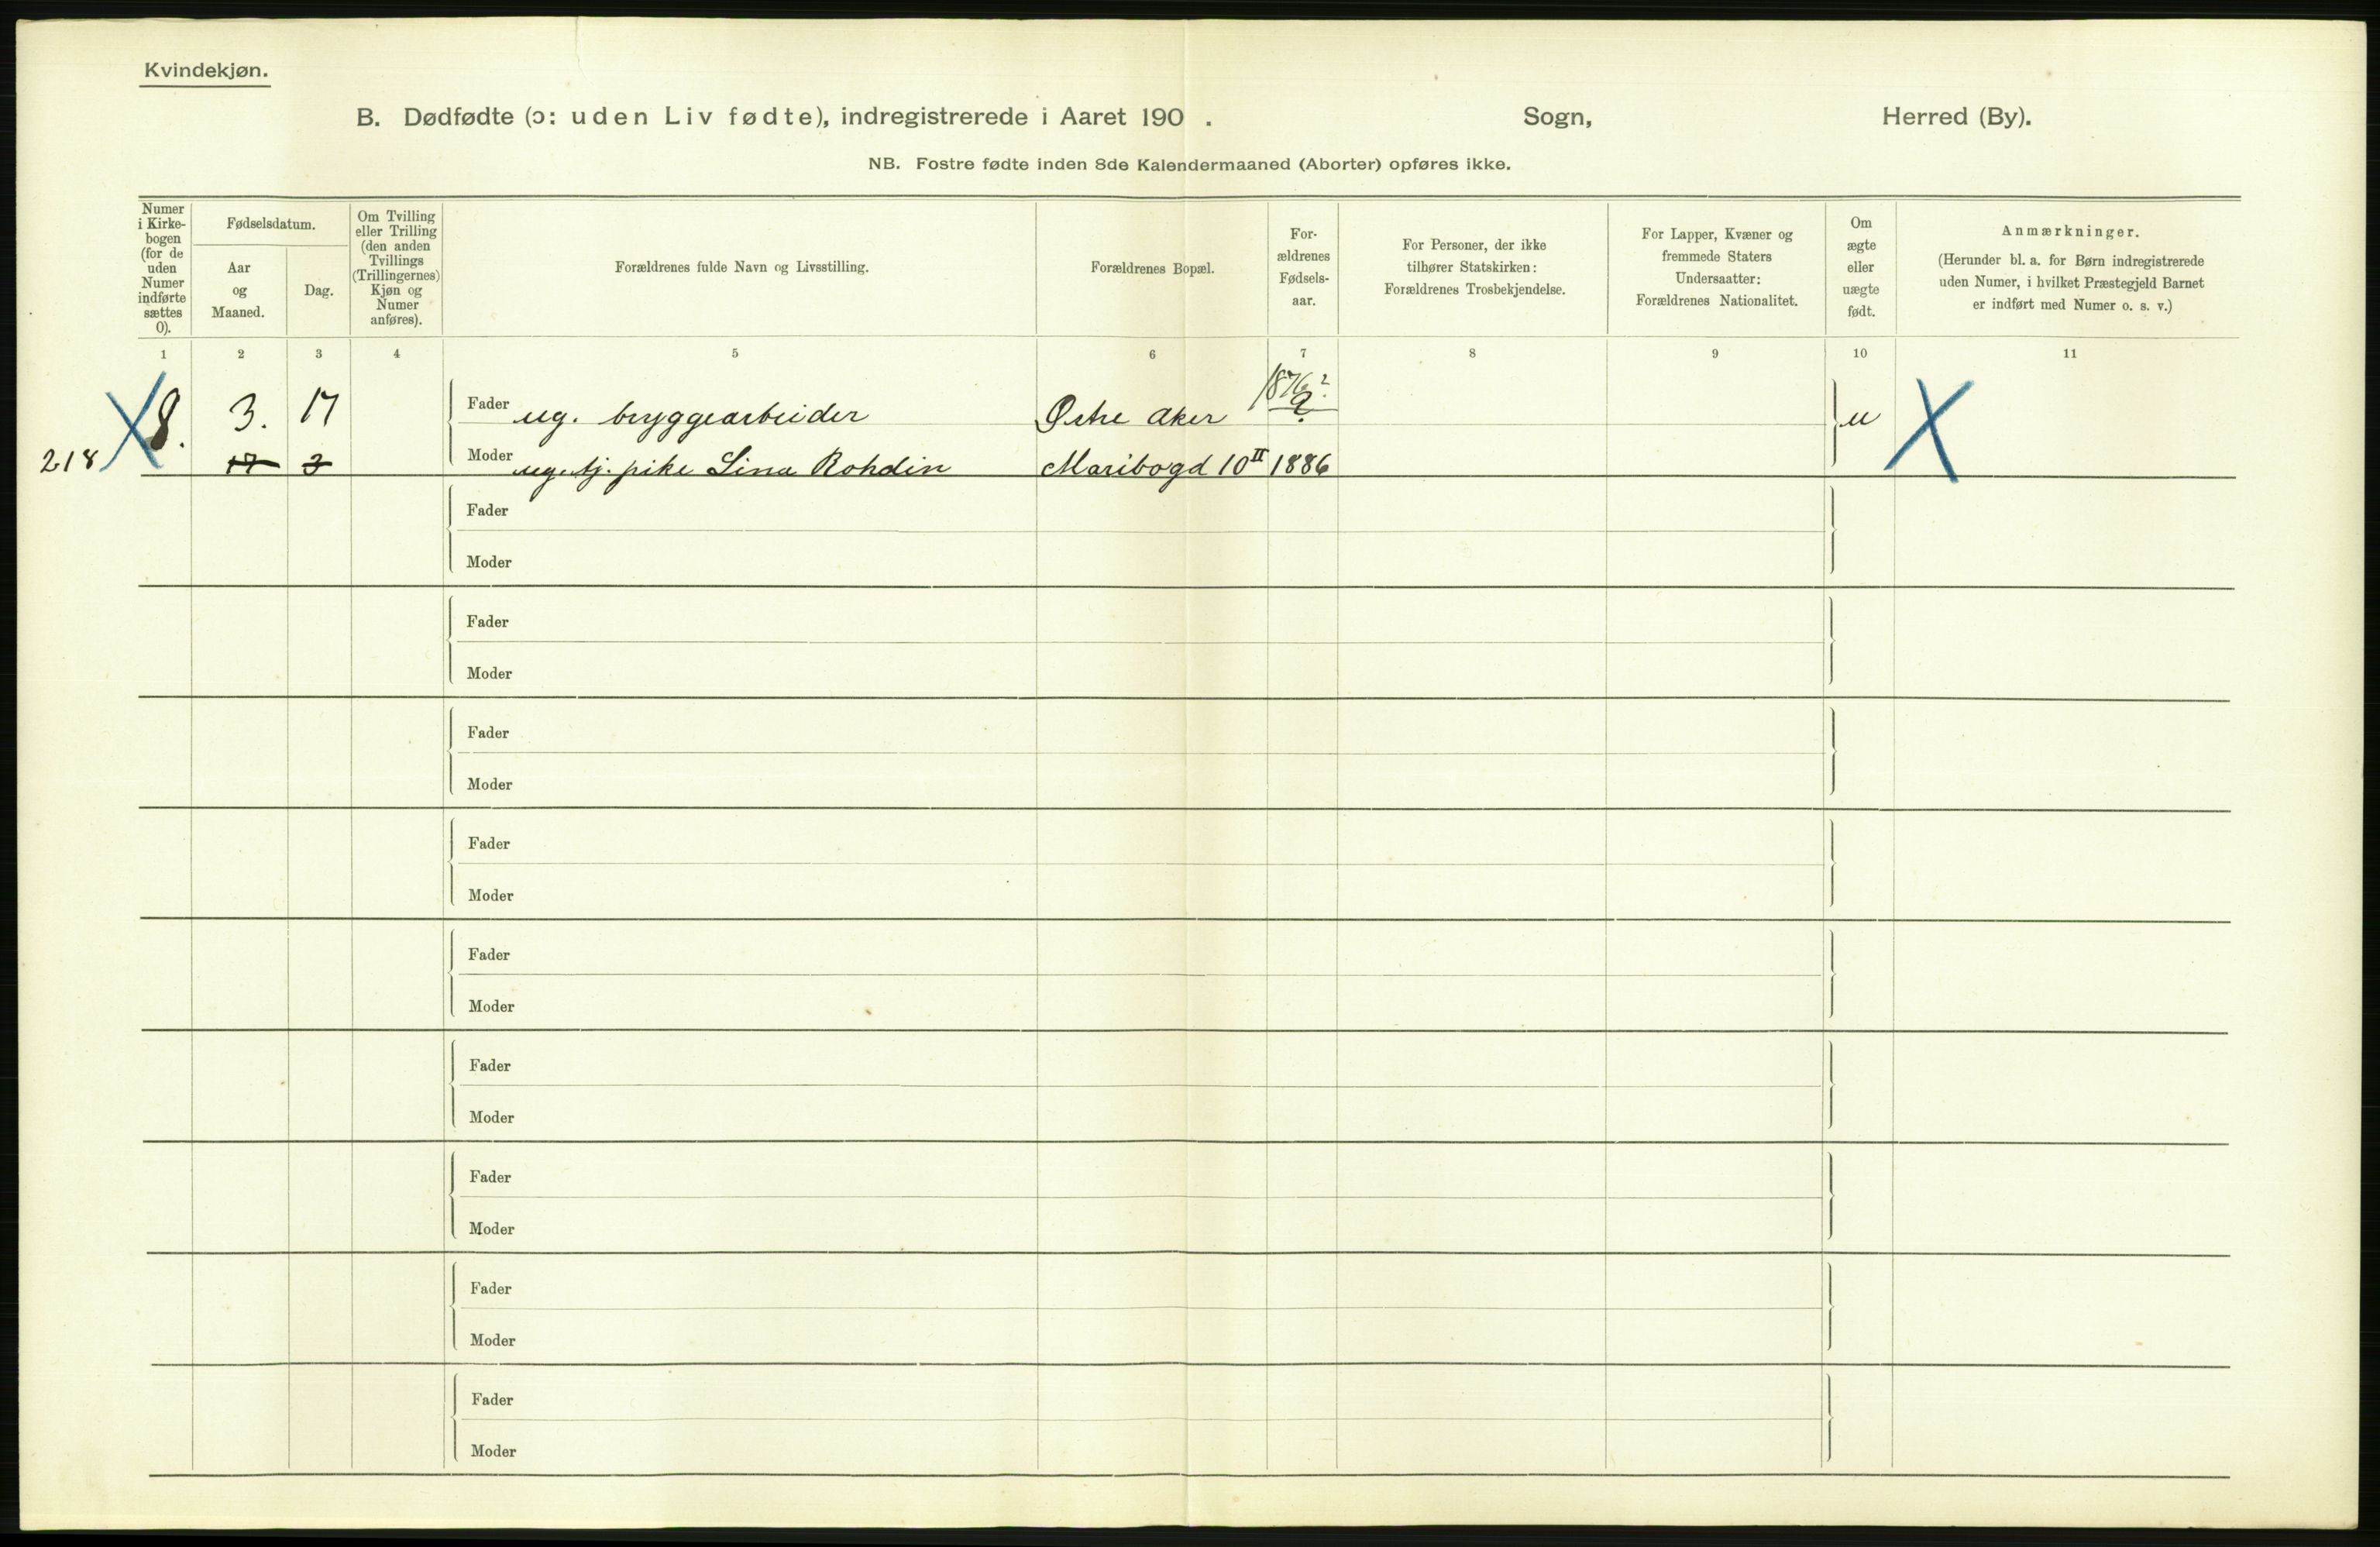 Kvindekjøn.
B. Dødfødte (ɔ: uden Liv fødte), indregistrerede i Aaret 190 . Sogn, Herred (By).
NB. Fostre fødte inden 8de Kalendermaaned (Aborter) opføres ikke.
Numer
i Kirke-
bogen
(for de
uden
Numer
indførte
sættes
0).
Fødselsdatum.
Aar
og
Maaned.
Dag.
Om Tvilling
eller Trilling
(den anden
Tvillings
(Trillingernes)
Kjøn og
Numer
anføres).
Forældrenes fulde Navn og Livsstilling.
Forældrenes Bopæl.
For-
ældrenes
Fødsels-
aar.
For Personer, der ikke
tilhører Statskirken:
Forældrenes Trosbekjendelse.
For Lapper, Kvæner og
fremmede Staters
Undersaatter:
Forældrenes Nationalitet.
Om
ægte
eller
uægte
født.
Anmærkninger.
(Herunder bl. a. for Børn indregistrerede
uden Numer, i hvilket Præstegjeld Barnet
er indført med Numer o. s. v.)
1 2 3 4 5 6 7 8 9 10 11
8. 3. 17 Fader ug. bryggearbeider Østre Aker 1876? u
218 17 3 Moder ug. tj. pike Lina Rohdin Maribogd 10 II 1886
Fader
Moder
Fader
Moder
Fader
Moder
Fader
Moder
Fader
Moder
Fader
Moder
Fader
Moder
Fader
Moder
Fader
Moder